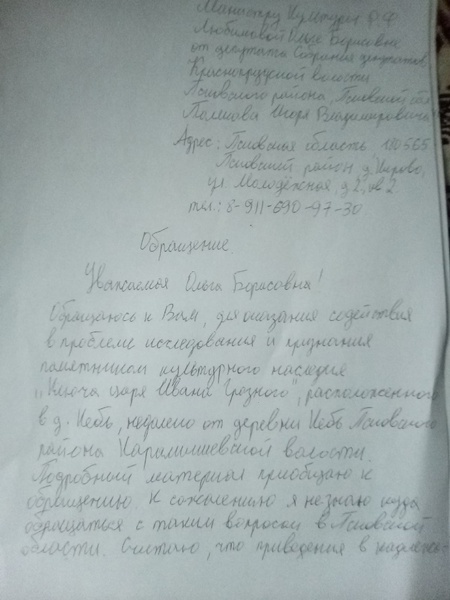 Министру Культуры РФ
Любимовой Ольге Борисовне
от депутата Собрания депутатов
Краснопрудской волости
Псковского района, Псковской обл.
Игоря Владимировича
Адрес: Псковская область 180565
Псковский район д. Кирово,
ул. Молодёжная, д 2, кв 2.
тел.: 8-911-690-97-30
Обращение.
Уважаемая Ольга Борисовна!
Обращаюсь к Вам, для оказания содействия
в проблеме исследования и признания
памятником культурного наследия
"Ключа царя Ивана Грозного", расположенного
в д. Кебь, недалеко от деревни Кебь Псковского
района Карамышевской волости.
Подробный материал приобщаю к
обращению. К сожалению я не знаю куда
обращаться с таким вопросом в Псковской
области. Считаю, что приведения в надлежа-